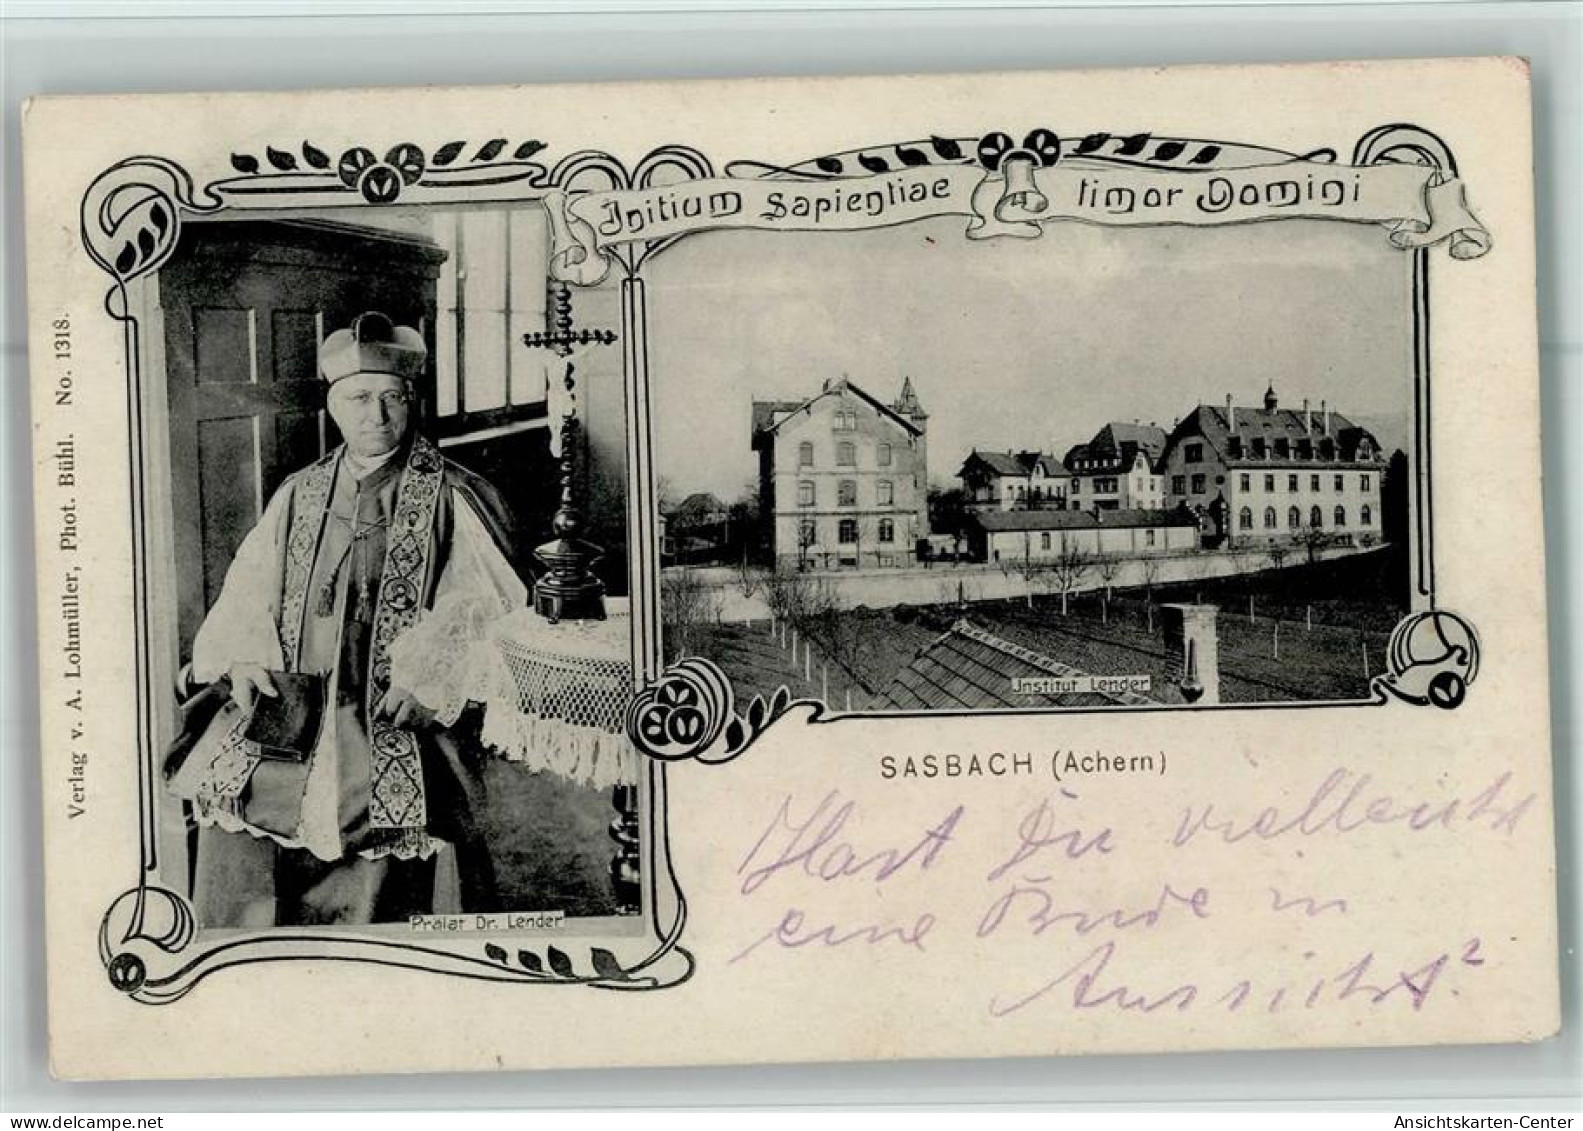 Initium Sapientiae timor Domini
Verlag v. A. Lohmüller, Phot. Bühl. No. 1318.
Institut Lender
Prälat Dr. Lender
SASBACH (Achern)
Hast Du vielleicht
eine Bude in
Aussicht?
Ansichtskarten-Center